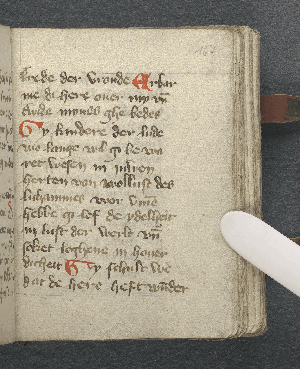 167
brede der vronde Erbar
me di here ouer my vn̄
twide mynes ghebedes
Gy kindere der lude
wo lange wil gi be wa
ret wesen in juwen
herten von wollust des
lichammes wor vm̄e
hebbe gi lef de ydelheit
in lust der werlt vn̄
soket loghene in houer
dicheit Gy schult we
dat de here heft wūder